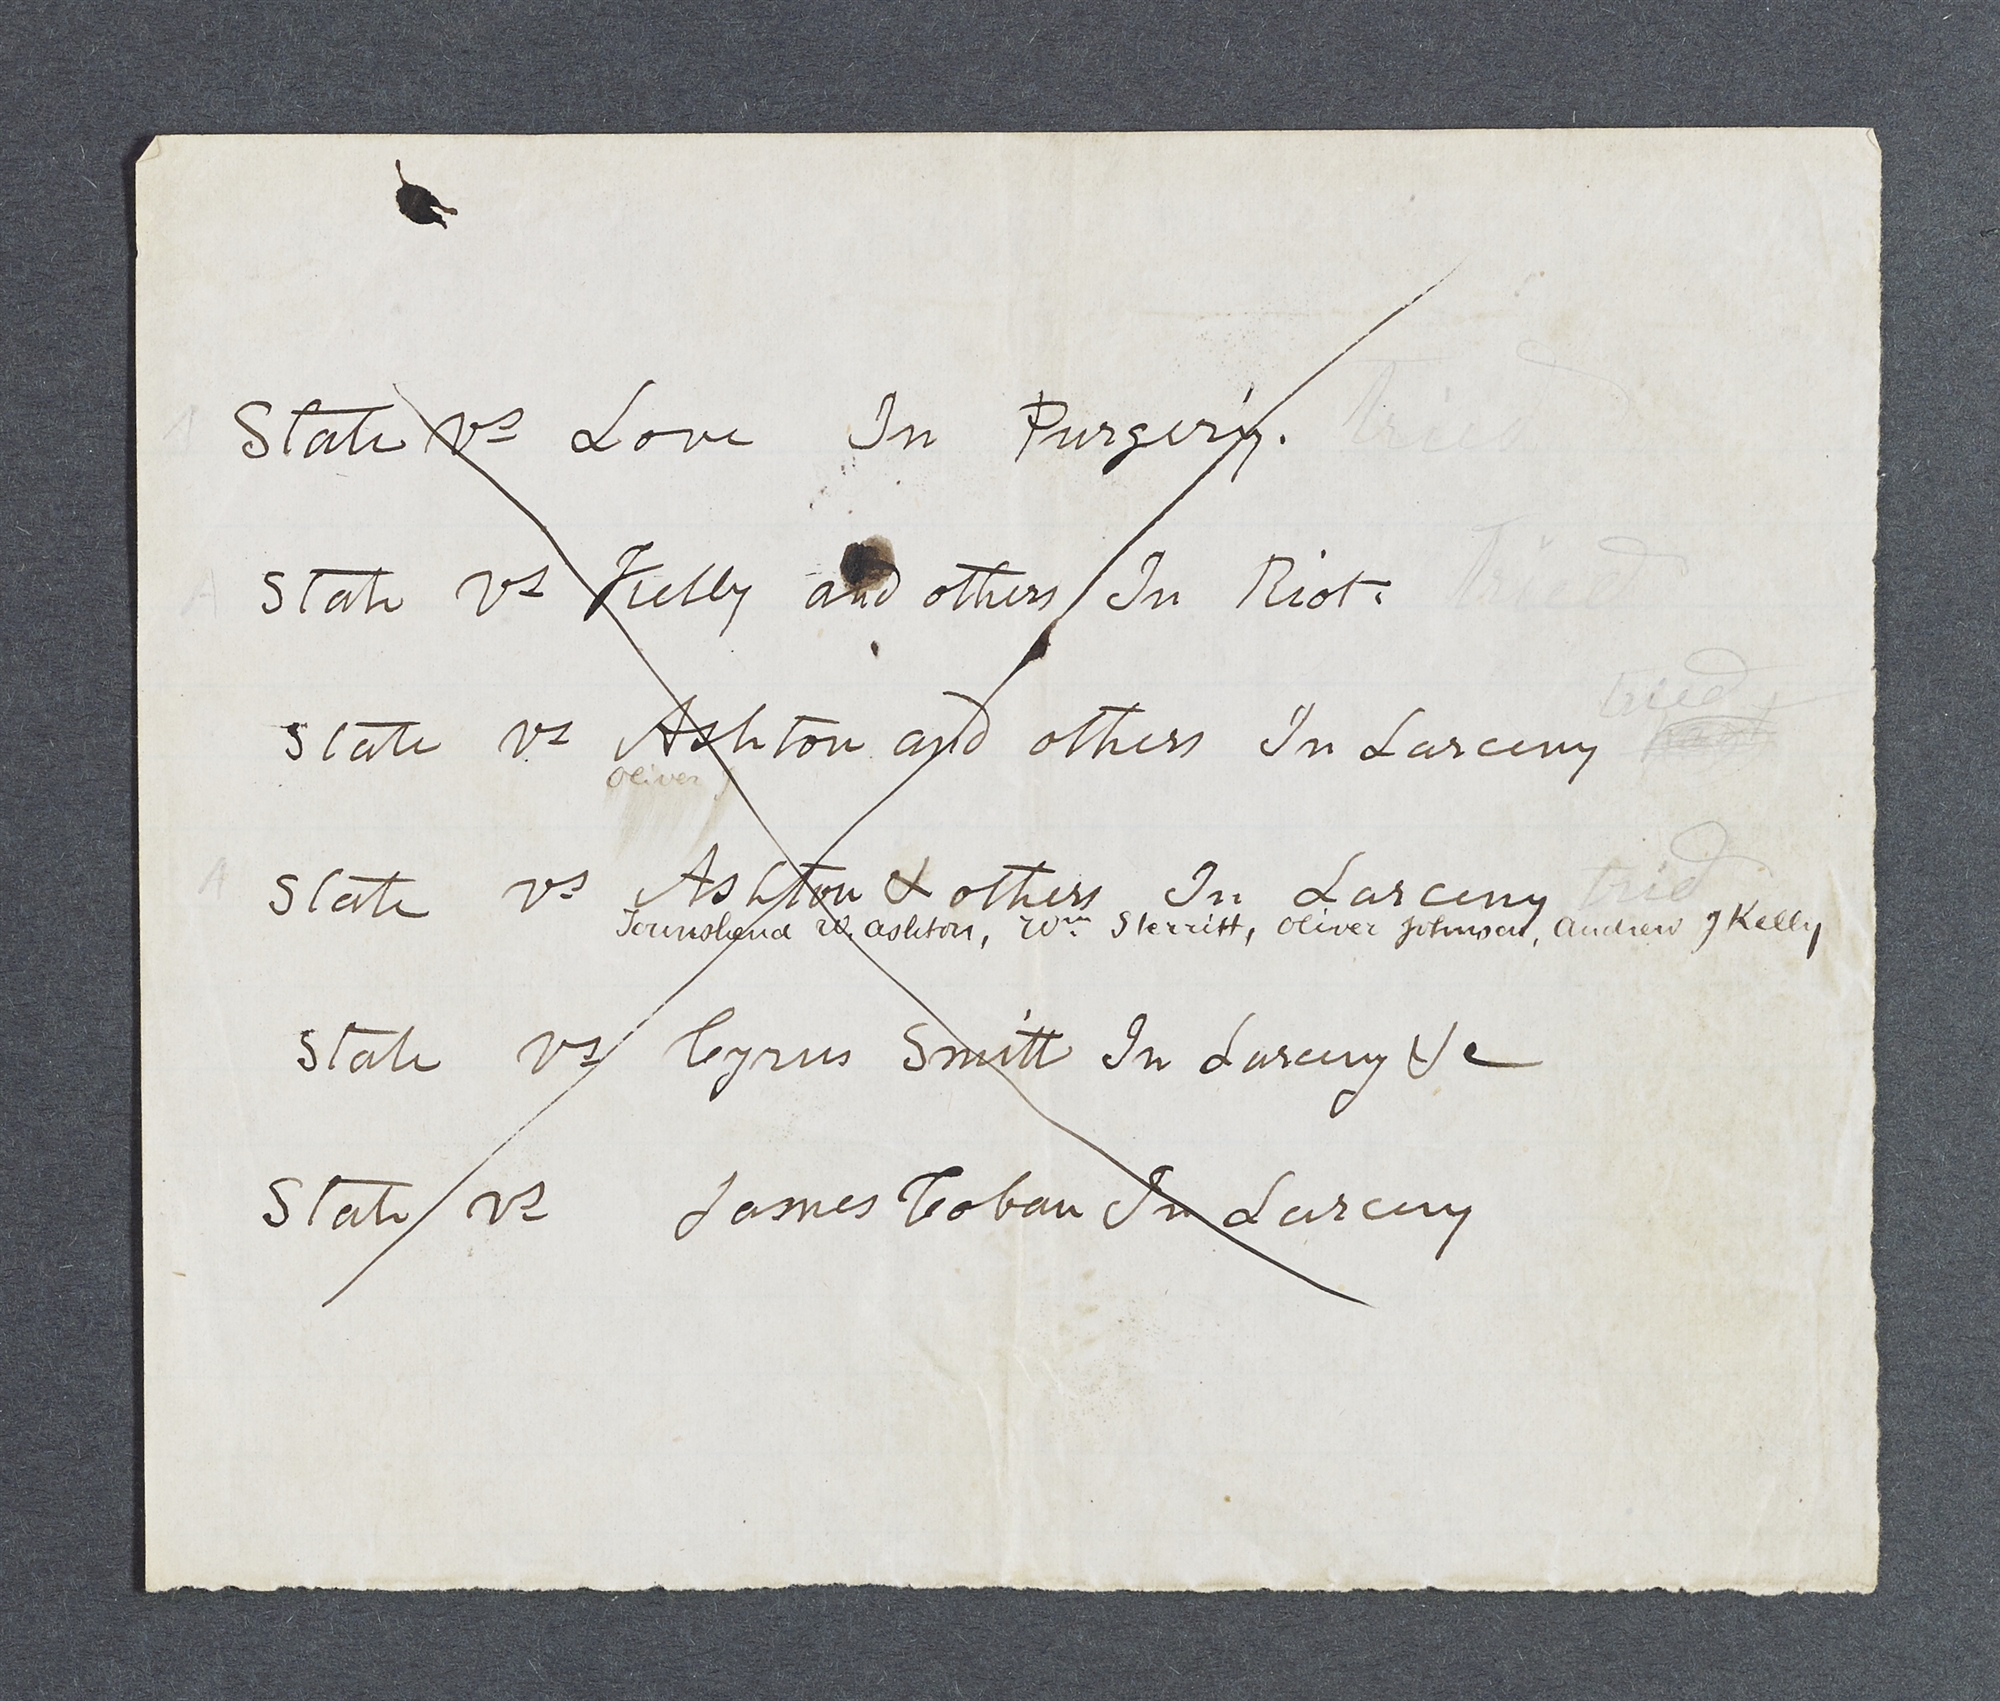 State vs Love In Purgery. tried
A State vs Kelly and others In Riot. tried
tried
State vs Ashton and others In Larceny
Oliver J
A State vs Ashton & others In Larceny trid
Townshend W. Ashton, Wm Sterritt, Oliver Johnson, Andrew J Kelly
State vs Cyrus Smitt In Larceny &c
State vs James Coban In Larceny